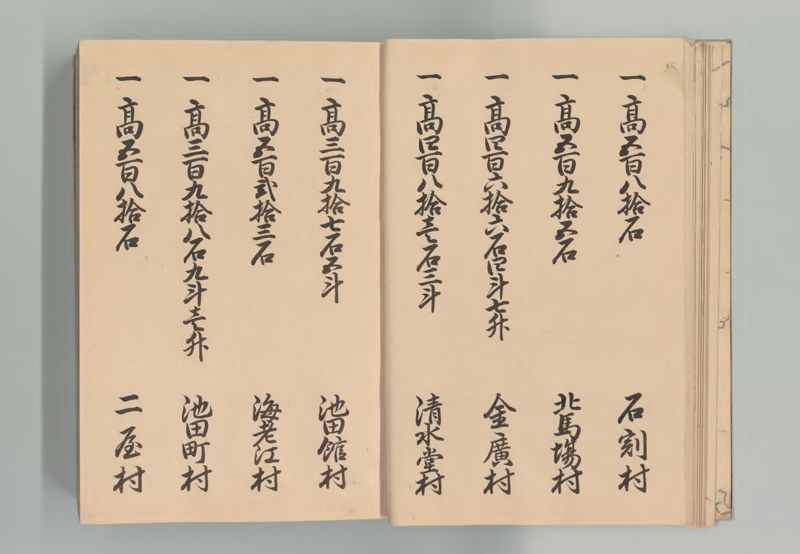 一 高五百八拾石 石割村
一 高五百九拾五石 北馬場村
一 高四百六拾六石四斗七升 金廣村
一 高四百八拾壱石三斗 清水堂村
一 高三百九拾七石五斗 池田舘村
一 高五百弐拾三石 海老江村
一 高三百九拾八石九斗壱升 池田町村
一 高五百八拾石 二屋村